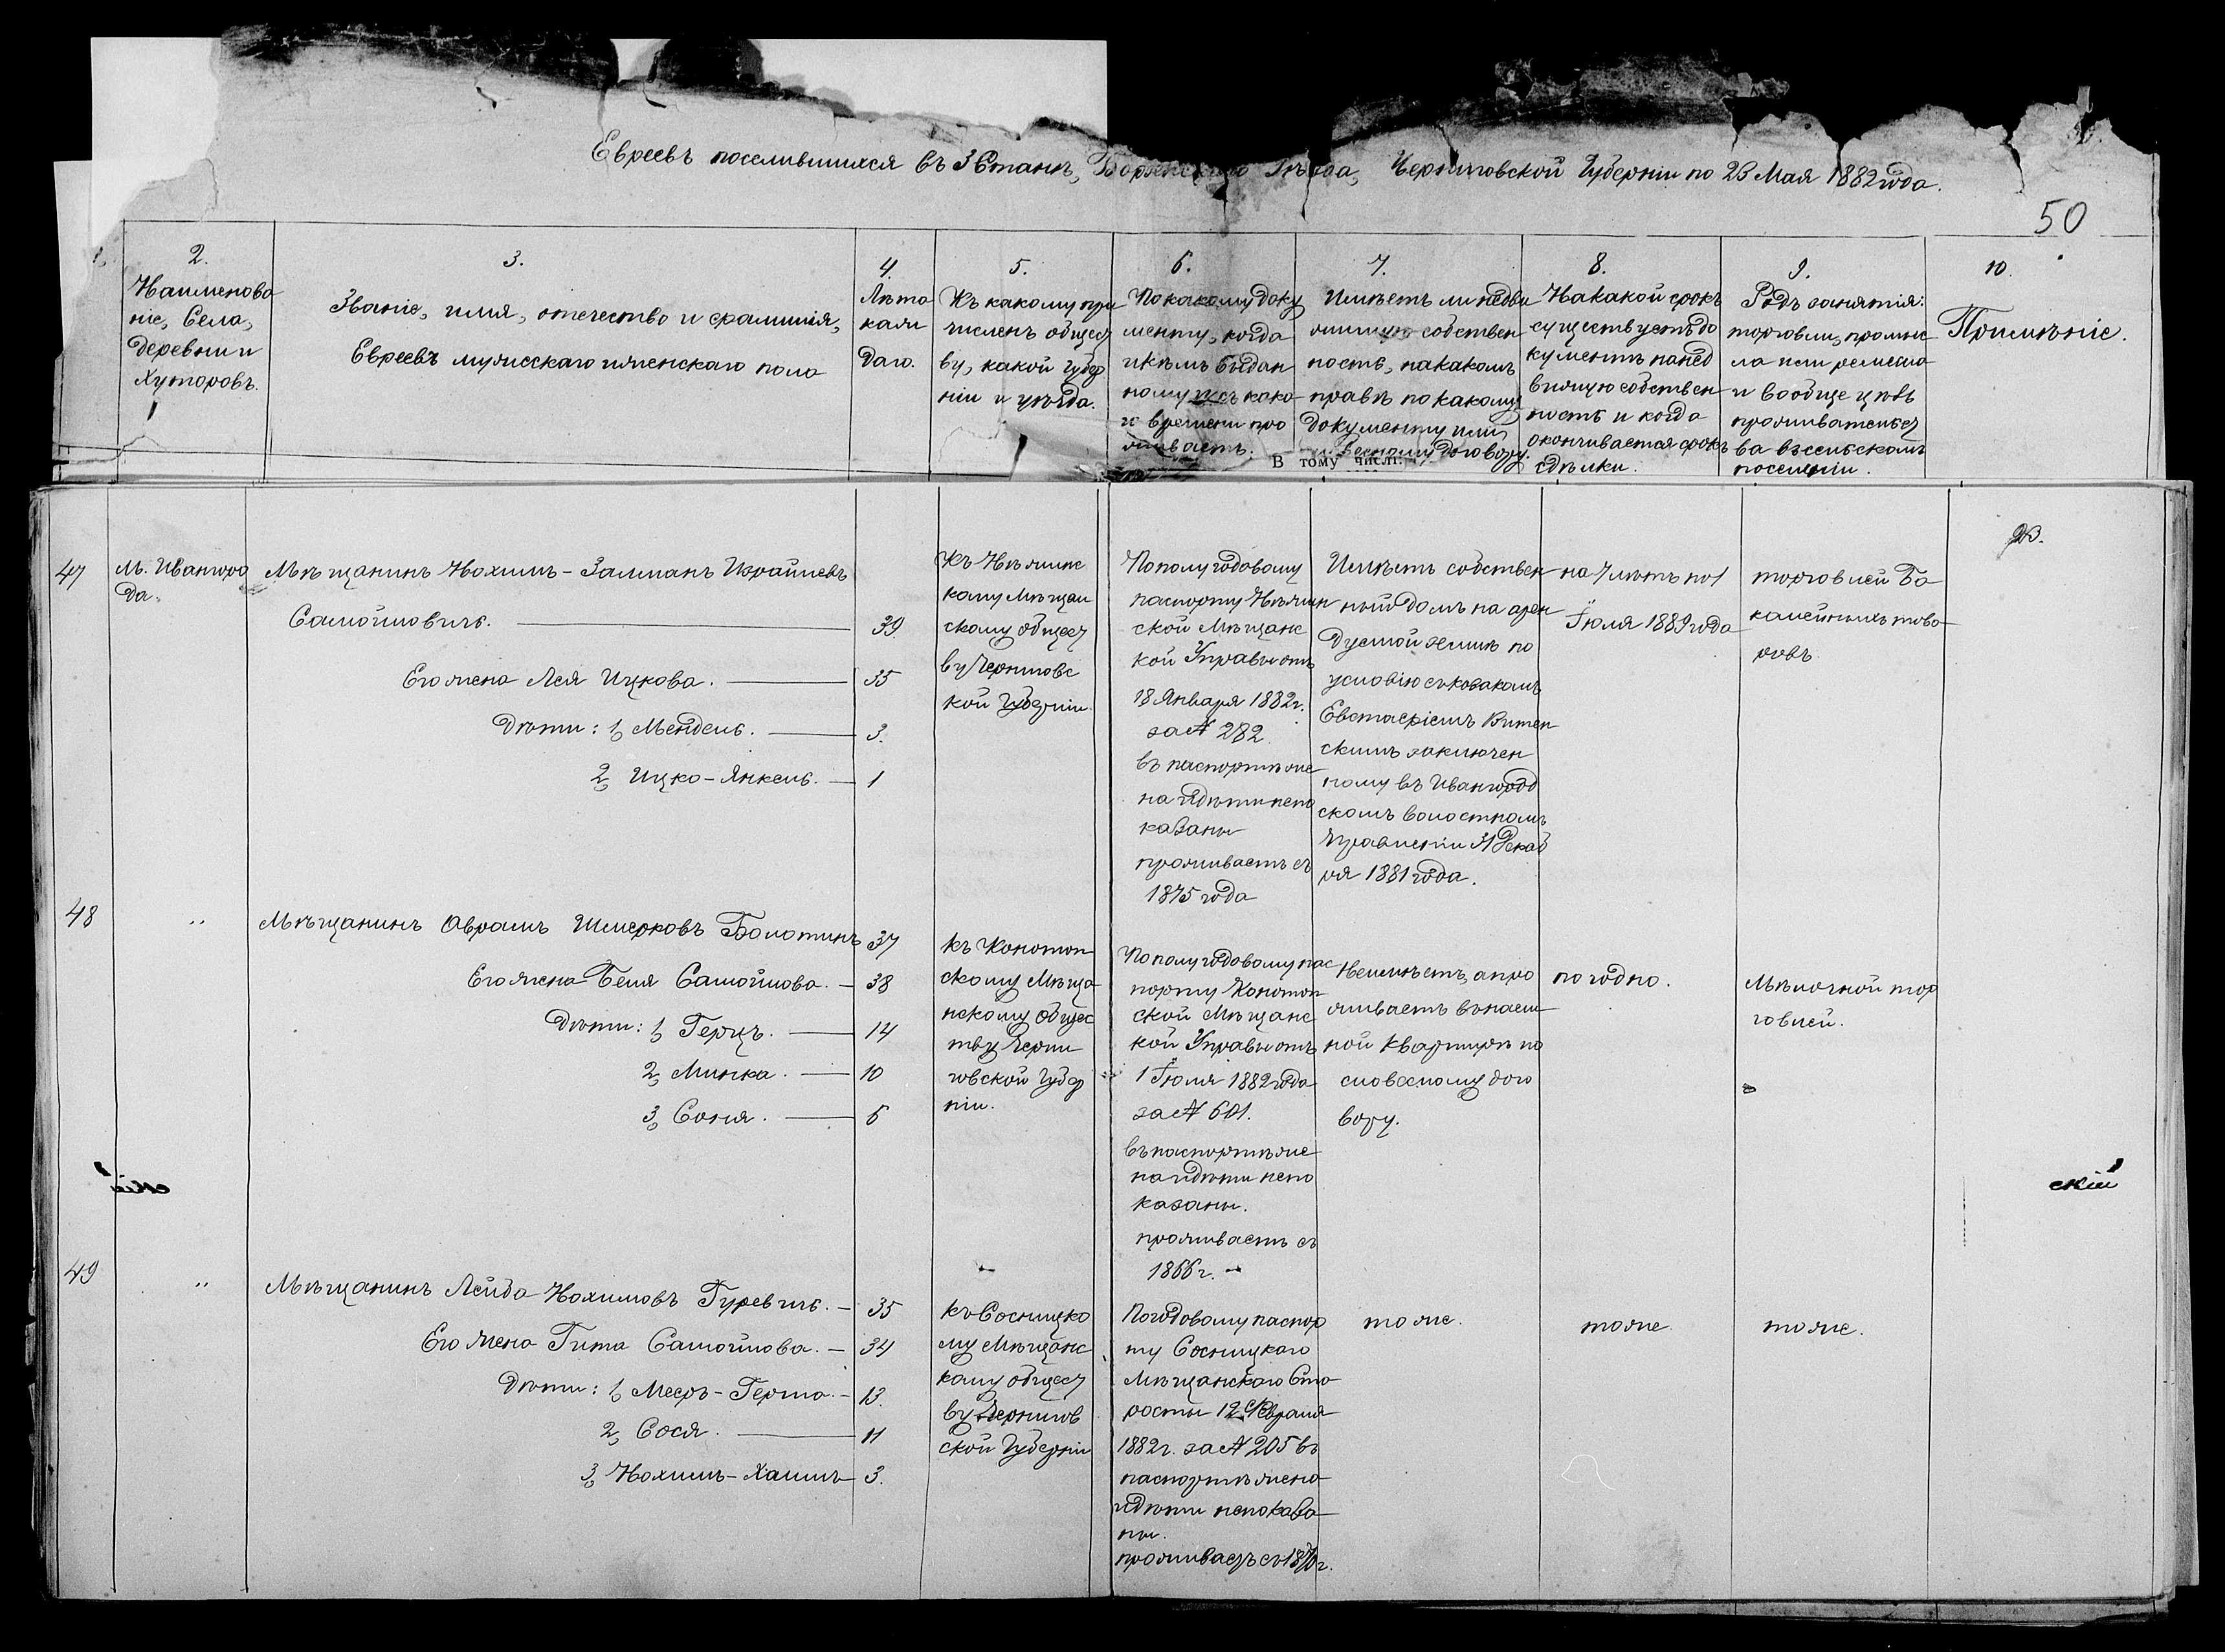 Евреевъ поселившихся въ 3 Станѣ, Борзенскаго Уѣзда, Черниговской Губерніи по 23 Мая 1882 года.
50
2.
Наименова
ніе, Села,
Деревни и
Хуторовъ.
3.
Званіе, имя, отечество и фамилія,
Евреевъ мужескаго и женскаго пола
4.
Лѣта
кажд
даго.
5.
Къ какому при
численъ общест
ву, какой Губер
ніи и уѣзда.
6.
По какому доку
менту, когда
и кѣмъ выдан
ному и съ како
го времени про
живаетъ.
7.
Имѣетъ ли недви
жимую собствен
ность, на какомъ
правѣ по какому
документу или
словесному договору.
В тому числі:
8.
На какой срокъ
существуетъ до
кументъ на нед
вижимую собствен
ность и когда
оканчивается срокъ
сдѣлки.
9.
Родъ занятія:
торговли, промыс
ла или ремесла
и вообще цѣль
прожительст
ва въ сельскомъ
поселеніи.
10.
Примѣніе.
23.
47
М. Ивангоро
да.
Мѣщанинъ Нохимъ-Залманъ Израилевъ
Самойловичъ. 39
Его жена Лея Ицкова. 35
Дѣти: 1, Мендель. 3.
2, Ицко-Янкель. 1
Къ Нѣжинс
кому Мѣщан
скому общест
ву Черниговс
кой Губерніи.
По полугодовому
паспорту Нѣжин
ской Мѣщанс
кой Управы отъ
18 Января 1882 г.
за № 282
въ паспортѣ же
на и дѣти непо
казаны
проживаетъ съ
1875 года
Имѣетъ собствен
ный домъ на арен
дуемой землѣ по
условію съ козакомъ
Евстафіемъ
скимъ заключен
ному въ Ивангород
скомъ волостномъ
Правленіи 31 Декаб
ря 1881 года.
на 7 лѣтъ по 1
Іюля 1889 года
торговлей Ба
калейныхъ това
ровъ
48
"
Мѣщанинъ Аврамъ Шмерковъ Болотинъ 37
Его жена Беля Самойлова. 38
Дѣти: 1, Герцъ. 14
2, Минка. 10
3, Соня. 5
къ Конотоп
скому Мѣща
нскому общес
тву Черни
говской Губер
ніи.
По полугодовому пас
порту Конотоп
ской Мѣщанс
кой Управы отъ
1 Іюля 1882 года
за № 601.
въ паспортѣ же
на и дѣти непо
казаны.
проживаетъ съ
1866 г.
Неимѣетъ, а про
живаетъ въ наем
ной квартирѣ по
словесному дого
вору.
погодно.
Мѣлочной тор
говлей.
скій
скій
49
"
Мѣщанинъ Лейба Нохимовъ Гуревичъ. 35
Его жена Гита Самойлова. 34
Дѣти: 1, Мееръ-Герша. 13.
2, Сося. 11
3, Нохимъ-Хаимъ 3.
къ Сосницко
му Мѣщанс
кому общест
ву Чернигов
ской Губерніи
По годовому паспор
ту Сосницкаго
Мѣщанскаго Ста
росты 12 Февраля
1882 г. за № 205 въ
паспортѣ жена
и дѣти непоказа
ны.
проживаетъ съ 1870 г.
тоже.
тоже
тоже.